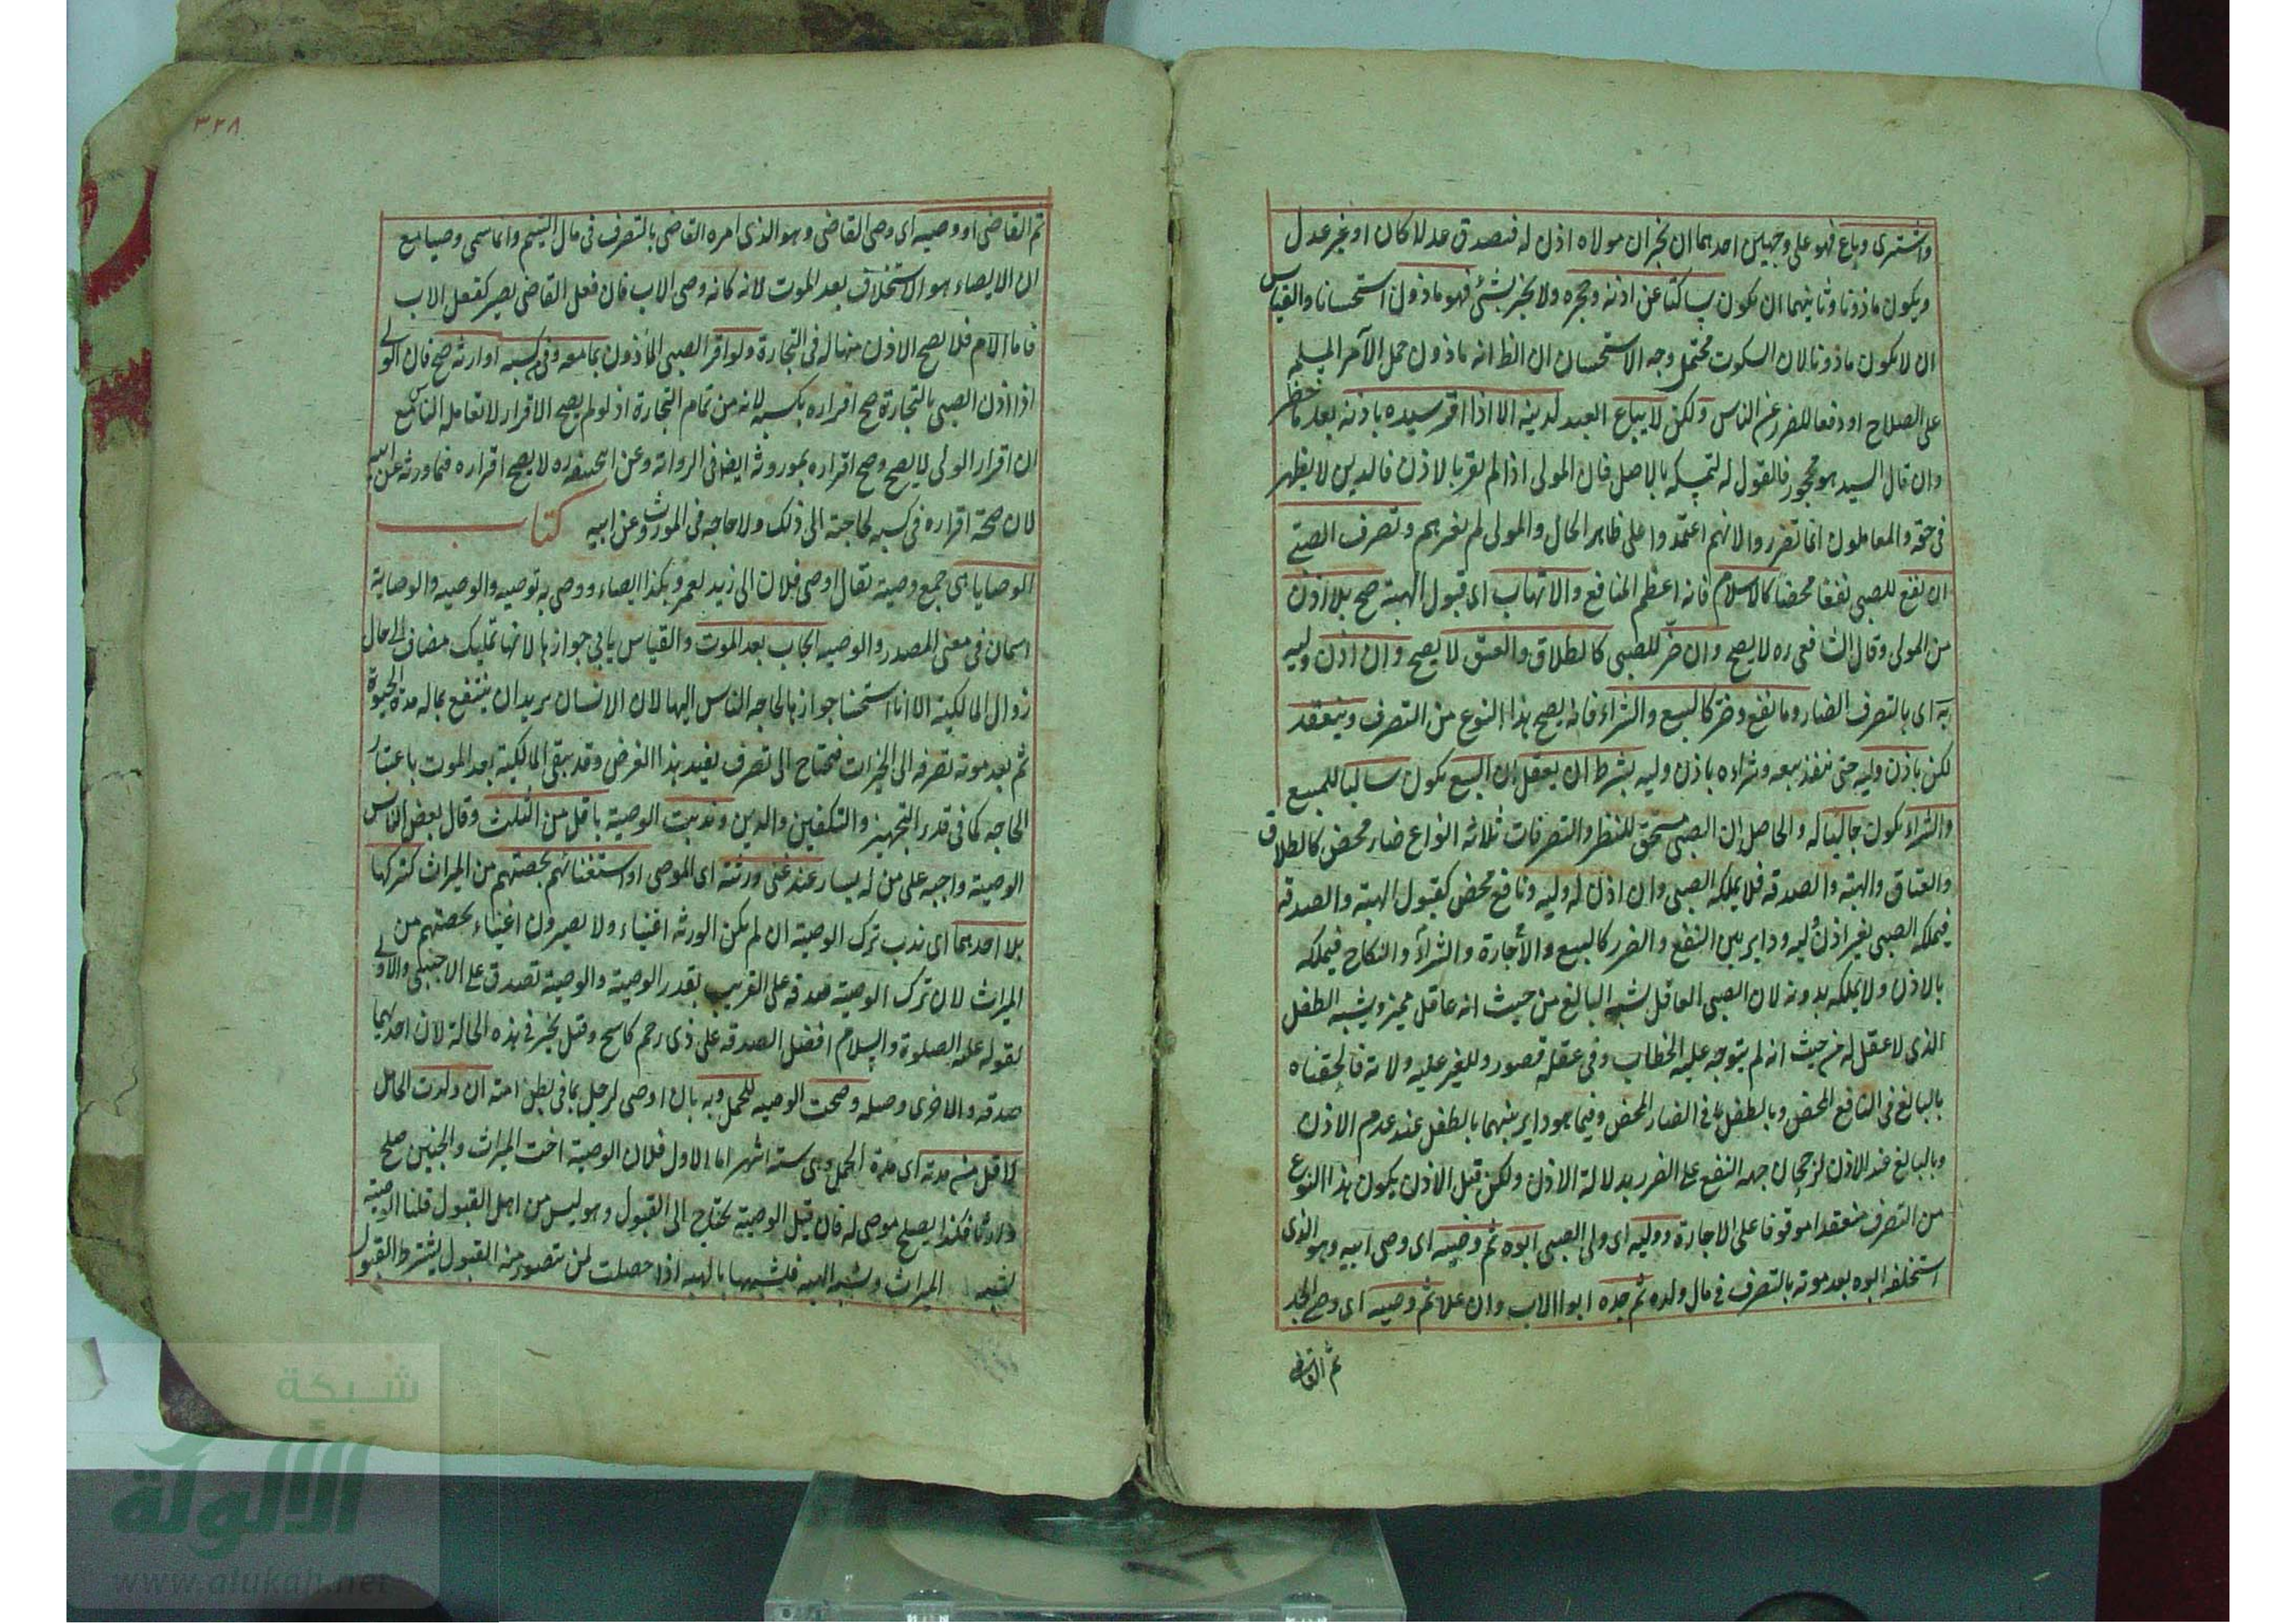 واشترى وباع فهو على وجهين احدهما ان يخبر ان مولاه اذن له فتصدق عدلا كان او غير عدل
ويكون ماذونا وثانيهما ان يكون ساكتا عن اذنه وحجره ولا يخبر بشئ فهو ماذون استحسانا والقياس
ان لا يكون ماذونا لان السكوت محتمل وجه الاستحسان ان الظ انه ماذون حمل الأمر المسلم
على الصلاح او دفعا للضرر عن الناس ولكن لا يباع العبد لدينه الا اذا اقر سيده باذنه بعد ما حضر
وان قال السيد هو محجور فالقول له لتمسكه بالاصل فان المولى اذا لم يقر بالاذن فالدين لا يظهر
فى حقه والمعاملون انما تضرروا لانهم اعتمدوا على ظاهر الحال والمولى لم يغرهم وتصرف الصبى
ان نفع للصبى نفعا محضا كالاسلام فانه اعظم المنافع والاتهاب اى قبول الهبة صح بلا اذن
من المولى وقال الشافعى ره لا يصح وان ضر للصبى كالطلاق والعتق لا يصح وان اذن وليه
به اى بالتصرف الضار وما نفع وضر كالبيع والشراء فانه يصح هذا النوع من التصرف وينعقد
لكن باذن وليه حتى ينفذ بيعه وشراءه باذن وليه بشرط ان يعقل ان البيع يكون سالبا للمبيع
والشراء يكون جالبا له والحاصل ان الصبى مستحق للنظر والتصرفات ثلاثه انواع ضار محض كالطلاق
والعتاق والهبة والصدقه فلا يملكه الصبى وان اذن له وليه ونافع محض كقبول الهبته والصدقه
فيملكه الصبى بغير اذن وليه وداير بين النفع والضرر كالبيع والأجارة والشراء والنكاح فيملكه
بالاذن ولا يملكه بدونه لان الصبى العاقل يشبه البالغ من حيث انه عاقل مميز ويشبه الطفل
الذى لا عقل له من حيث انه لم يتوجه عليه الخطاب وفى عقله قصور وللغير عليه ولاية فالحقناه
بالبالغ فى النافع المحض وبالطفل فى الضار المحض وفيما هو داير بينهما بالطفل عند عدم الاذن
وبالبالغ عند الاذن لرجحان جهه النفع على الضرر بدلالة الاذن ولكن قبل الاذن يكون هذا النوع
من التصرف منعقدا موقوفا على الاجازة ووليه اى ولى الصبى ابوه ثم وصيه اى وصى ابيه وهو الذى
استخلفه ابوه بعد موته بالتصرف فى مال ولده ثم جده ابو الاب وان علا ثم وصيه اى وصى الجد
ثم القاضى
٣٢٨
ثم القاضى او وصيه اى وصى القاضى وهو الذى امره القاضى بالتصرف فى مال اليتيم وانما سمى وصيا مع
ان الايصاء هو الاستخلاف بعد الموت لانه كانه وصى الاب فان فعل القاضى يصير كفعل الاب
فاما الام فلا يصح الاذن منها له فى التجارة ولو اقر الصبى المأذون بما معه وفى كسبه او ارثه صح فان الولى
اذا اذن الصبى بالتجارة صح اقراره بكسبه لانه من تمام التجارة اذ لو لم يصح الاقرار لا تعامله الناس مع
ان اقرار الولى لا يصح وصح اقراره بموروثه ايضا فى الرواية وعن ابيحنيفه ره لا يصح اقراره فيما ورثه عن ابيه
لان صحة اقراره فى كسبه لحاجته الى ذلك ولا حاجه فى الموروث وعن ابيه كتاب
الوصايا هى جمع وصية تقال اوصى فلان الى زيد لعمرو بكذا ايصاء ووصى به توصيه والوصيه والوصاية
اسمان فى معنى المصدر والوصيه ايجاب بعد الموت والقياس يابى جوازها لانها تمليك مضاف الى حال
زوال المالكية الا انا استحسنا جوازها لحاجه الناس اليها لان الانسان يريد ان ينتفع بماله مدة الحيوة
ثم بعد موته تصرفه الى الخيرات فتحتاج الى تصرف يفيد هذا الغرض وقد يبقى المالكية بعد الموت باعتبار
الحاجه كما فى قدر التجهيز والتكفين والدين وندبت الوصية باقل من الثلث وقال بعض الناس
الوصية واجبه على من له يسار عند غنى ورثته اى الموصى او استغنائهم بحصتهم من الميراث كتركها
بلا احدهما اى ندب ترك الوصية ان لم يكن الورثه اغنياء ولا يصيرون اغنياء بحصتهم من
الميراث لان ترك الوصية صدقه على القريب بقدر الوصية والوصية تصدق على الاجنبى والاولى
لقوله عليه الصلوة والسلام افضل الصدقه على ذى رحم كاشح وقيل يخير فى هذه الحالة لان احديهما
صدقه والاخرى وصله وصحت الوصيه للحمل وبه بان اوصى لرجل بما فى بطن امته ان ولدت الحامل
لاقل من مدته اى مدة الحمل وهى سته اشهر اما الاول فلان الوصية اخت الميراث والجنين صلح
وارثا فكذا يصلح موصى له فان قيل الوصية يحتاج الى القبول وهو ليس من اهل القبول قلنا الوصيته
تشبه الميراث وتشبه الهبه فلشبهها بالهبه اذا حصلت لمن يتصور منه القبول يشترط القبول
شبكة
الألوكة
www.alukah.net